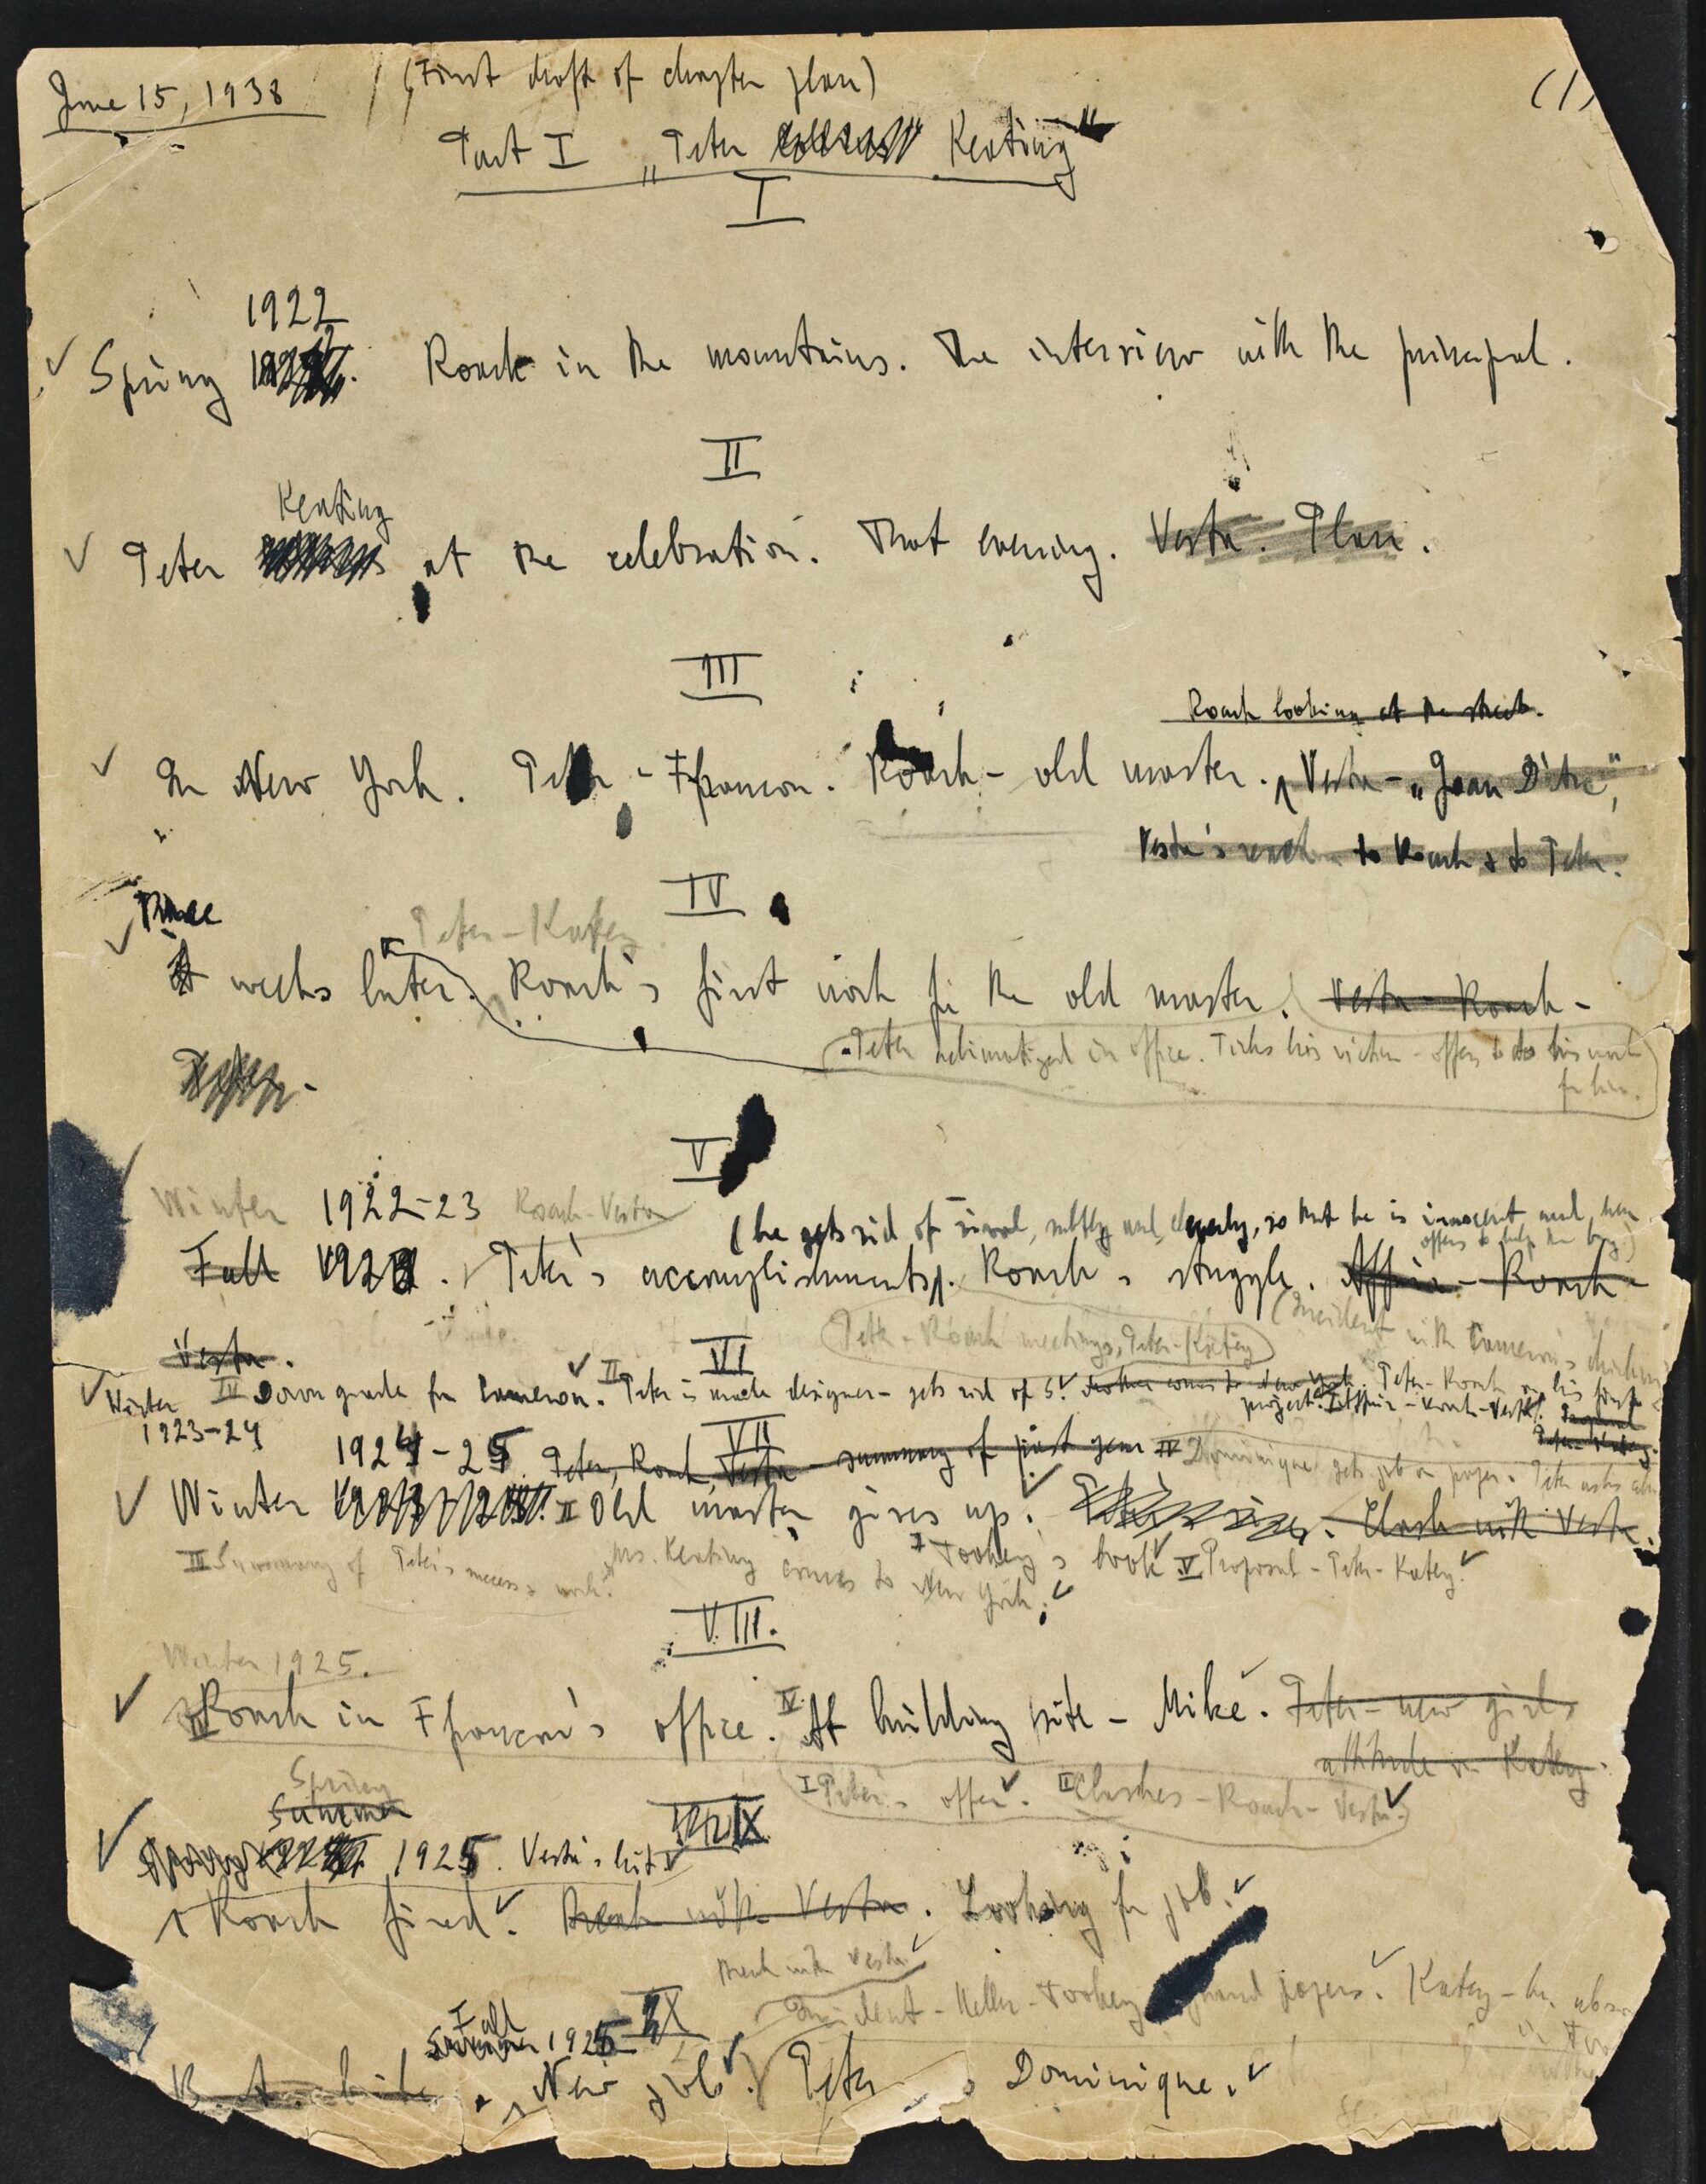 June 15, 1938
(First draft of chapter plan)
(1)
Part I "Peter Keating"
I
1922
Spring Roark in the mountains. The interview with the principal.
II
Keating
Peter at the celebration. That evening. Vesta. Plan.
III
Roark looking at the streets.
In New York. Peter - Francon. Roark - old master. Vesta - "Joan D'Arc",
Vesta's reaction to Roark & to Peter.
IV
Three
Peter - Katey
weeks later. Roark's first work for the old master. Vesta - Roark -
Peter in office. Picks his victim - offers to do his work
for him.
Peter.
V
Winter 1922-23 Roark-Vesta
(he gets rid of rival, subtly and cleverly, so that he is innocent and even
offers to help the boy)
Fall 192 . Peter's accomplishments. Roark's struggle. Affair - Roark -
(Incident with Cameron's
Peter - Roark meetings, Peter-Katey
Vesta.
VI
Winter IV Down grade for Cameron. II Peter is made designer - gets rid of S. Mother comes to New York. Peter - Roark on his first
project. I Affair - Roark - Vesta. Proposal
1923-24
Peter-Katey.
VII
1924-25 Peter, Roark, Vesta - summary of past year IV Dominique gets job on paper. Peter asks
Winter II Old master gives up. Clash with Vesta.
III Summary of Peter's success & work. Mrs. Keating comes to New York. I Toohey's book V Proposal - Peter - Katey.
VIII.
Winter 1925.
III Roark in Francon's office. IV At building site - Mike. Peter - new girl,
attitude on Katey.
I Peter's offer. II Clashes - Roark - Vesta.
Spring
Summer
IX
1925. Vesta's hit
Roark fired. Break with Vesta. Looking for job.
Break with Vesta
Incident - Heller - Toohey papers. Katey -
Fall
Summer 1925
X
New job. Peter Dominique.